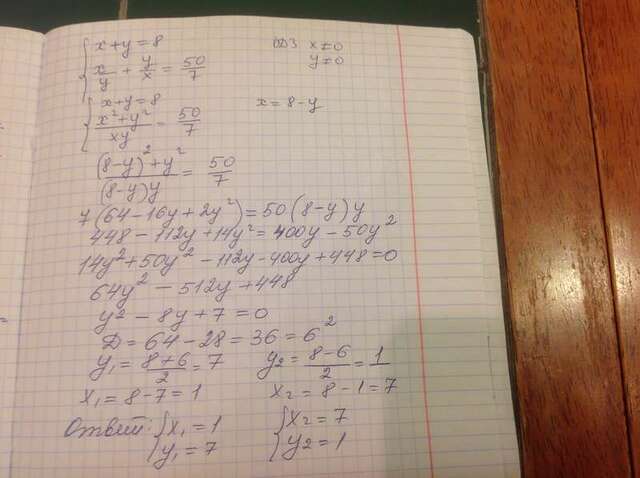 { x + y = 8    ОДЗ x ≠ 0
x/y + y/x = 50/7    y ≠ 0
{ x + y = 8    x = 8 - y
(x² + y²)/(xy) = 50/7
((8 - y)² + y²)/((8 - y)y) = 50/7
7(64 - 16y + 2y²) = 50(8 - y)y
448 - 112y + 14y² = 400y - 50y²
14y² + 50y² - 112y - 400y + 448 = 0
64y² - 512y + 448
y2 - 8y + 7 = 0
D = 64 - 28 = 36 = 6²
y₁ = (8 + 6)/2 = 7    y₂ = (8 - 6)/2 = 1
x₁ = 8 - 7 = 1    x₂ = 8 - 1 = 7
Ответ: { x₁ = 1    { x₂ = 7
y₁ = 7    y2 = 1